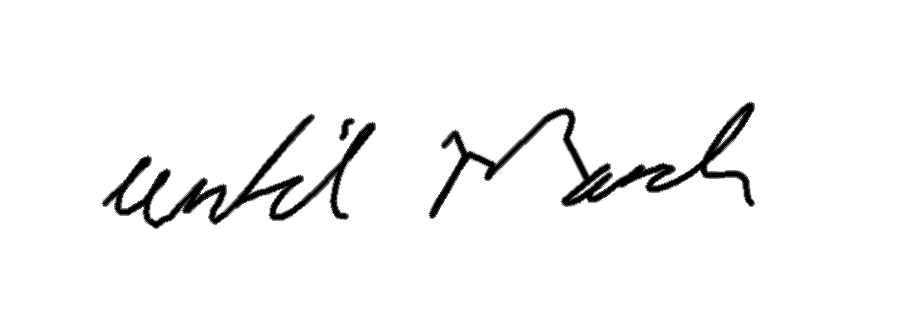 until March